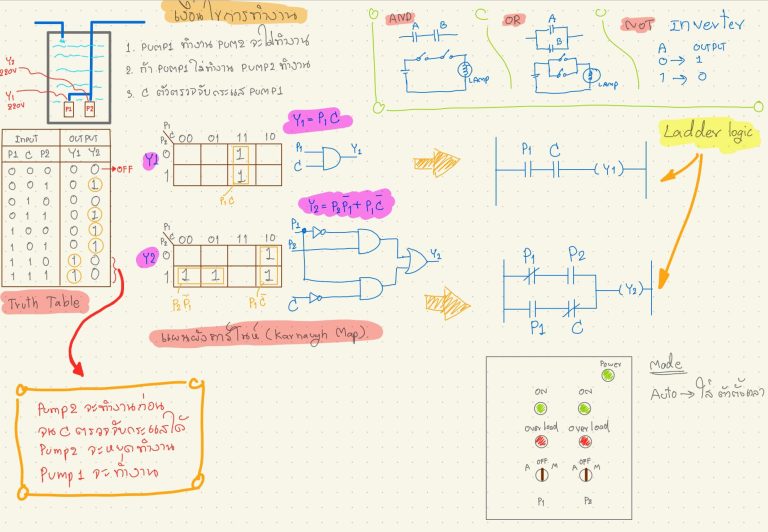 เงื่อนไขการทำงาน
1. PUMP1 ทำงาน PUM2 จะไม่ทำงาน
2. ถ้า PUMP1 ไม่ทำงาน PUMP2 ทำงาน
3. C ตัวตรวจจับกระแส PUMP1
Y2
220V
Y1
220V
P1 P2
AND
A B
LAMP
C
OR
A
B
LAMP
NOT Inverter
A OUTPUT
0 → 1
1 → 0
INPUT OUTPUT
P1 C P2 Y1 Y2
0 0 0 0 0 → OFF
0 0 1 0 1
0 1 0 0 0
0 1 1 0 1
1 0 0 0 1
1 0 1 0 1
1 1 0 1 0
1 1 1 1 0
Truth Table
Y1 = P1C
Y1
P1
P2 C 00 01 11 10
0 1
1 1
P1C
P1
C
Y1
Ladder logic
P1 C (Y1)
Y2 = P2P̄1 + P1C̄
Y2
P1
P2 C 00 01 11 10
0 1
1 1 1 1
P2P̄1 P1C̄
P1
P2
C
Y2
P1 P2
(Y2)
P1 C
แผนผังคาร์โนห์ (Karnaugh Map)
Pump2 จะทำงานก่อน
จน C ตรวจจับกระแสได้
Pump2 จะหยุดทำงาน
Pump1 จะทำงาน
Power
ON ON
overload overload
A OFF M A OFF M
P1 P2
Mode
Auto →